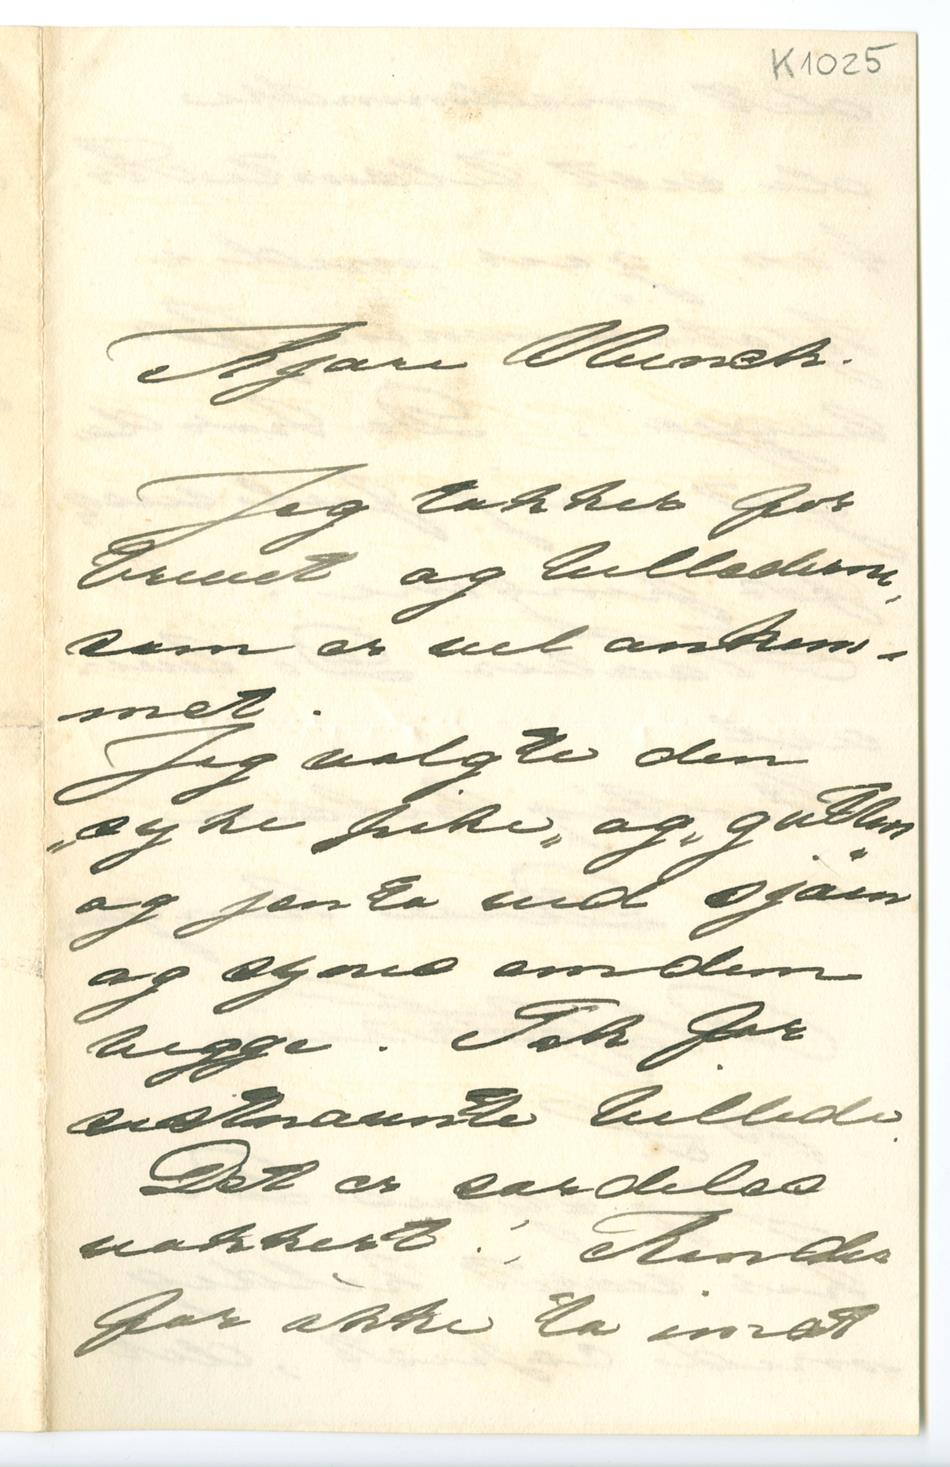 K1025
Kjære Munch.
Jeg takker for
brevet og billederne,
som er vel ankom-
met.
Jeg valgte den
„syke pike„ og „gutten
og jenta ved sjøen"
og synes om dem
begge. Tak for
sidstnævnte billede.
Det er særdeles
vakkert!
for ikke ta imot